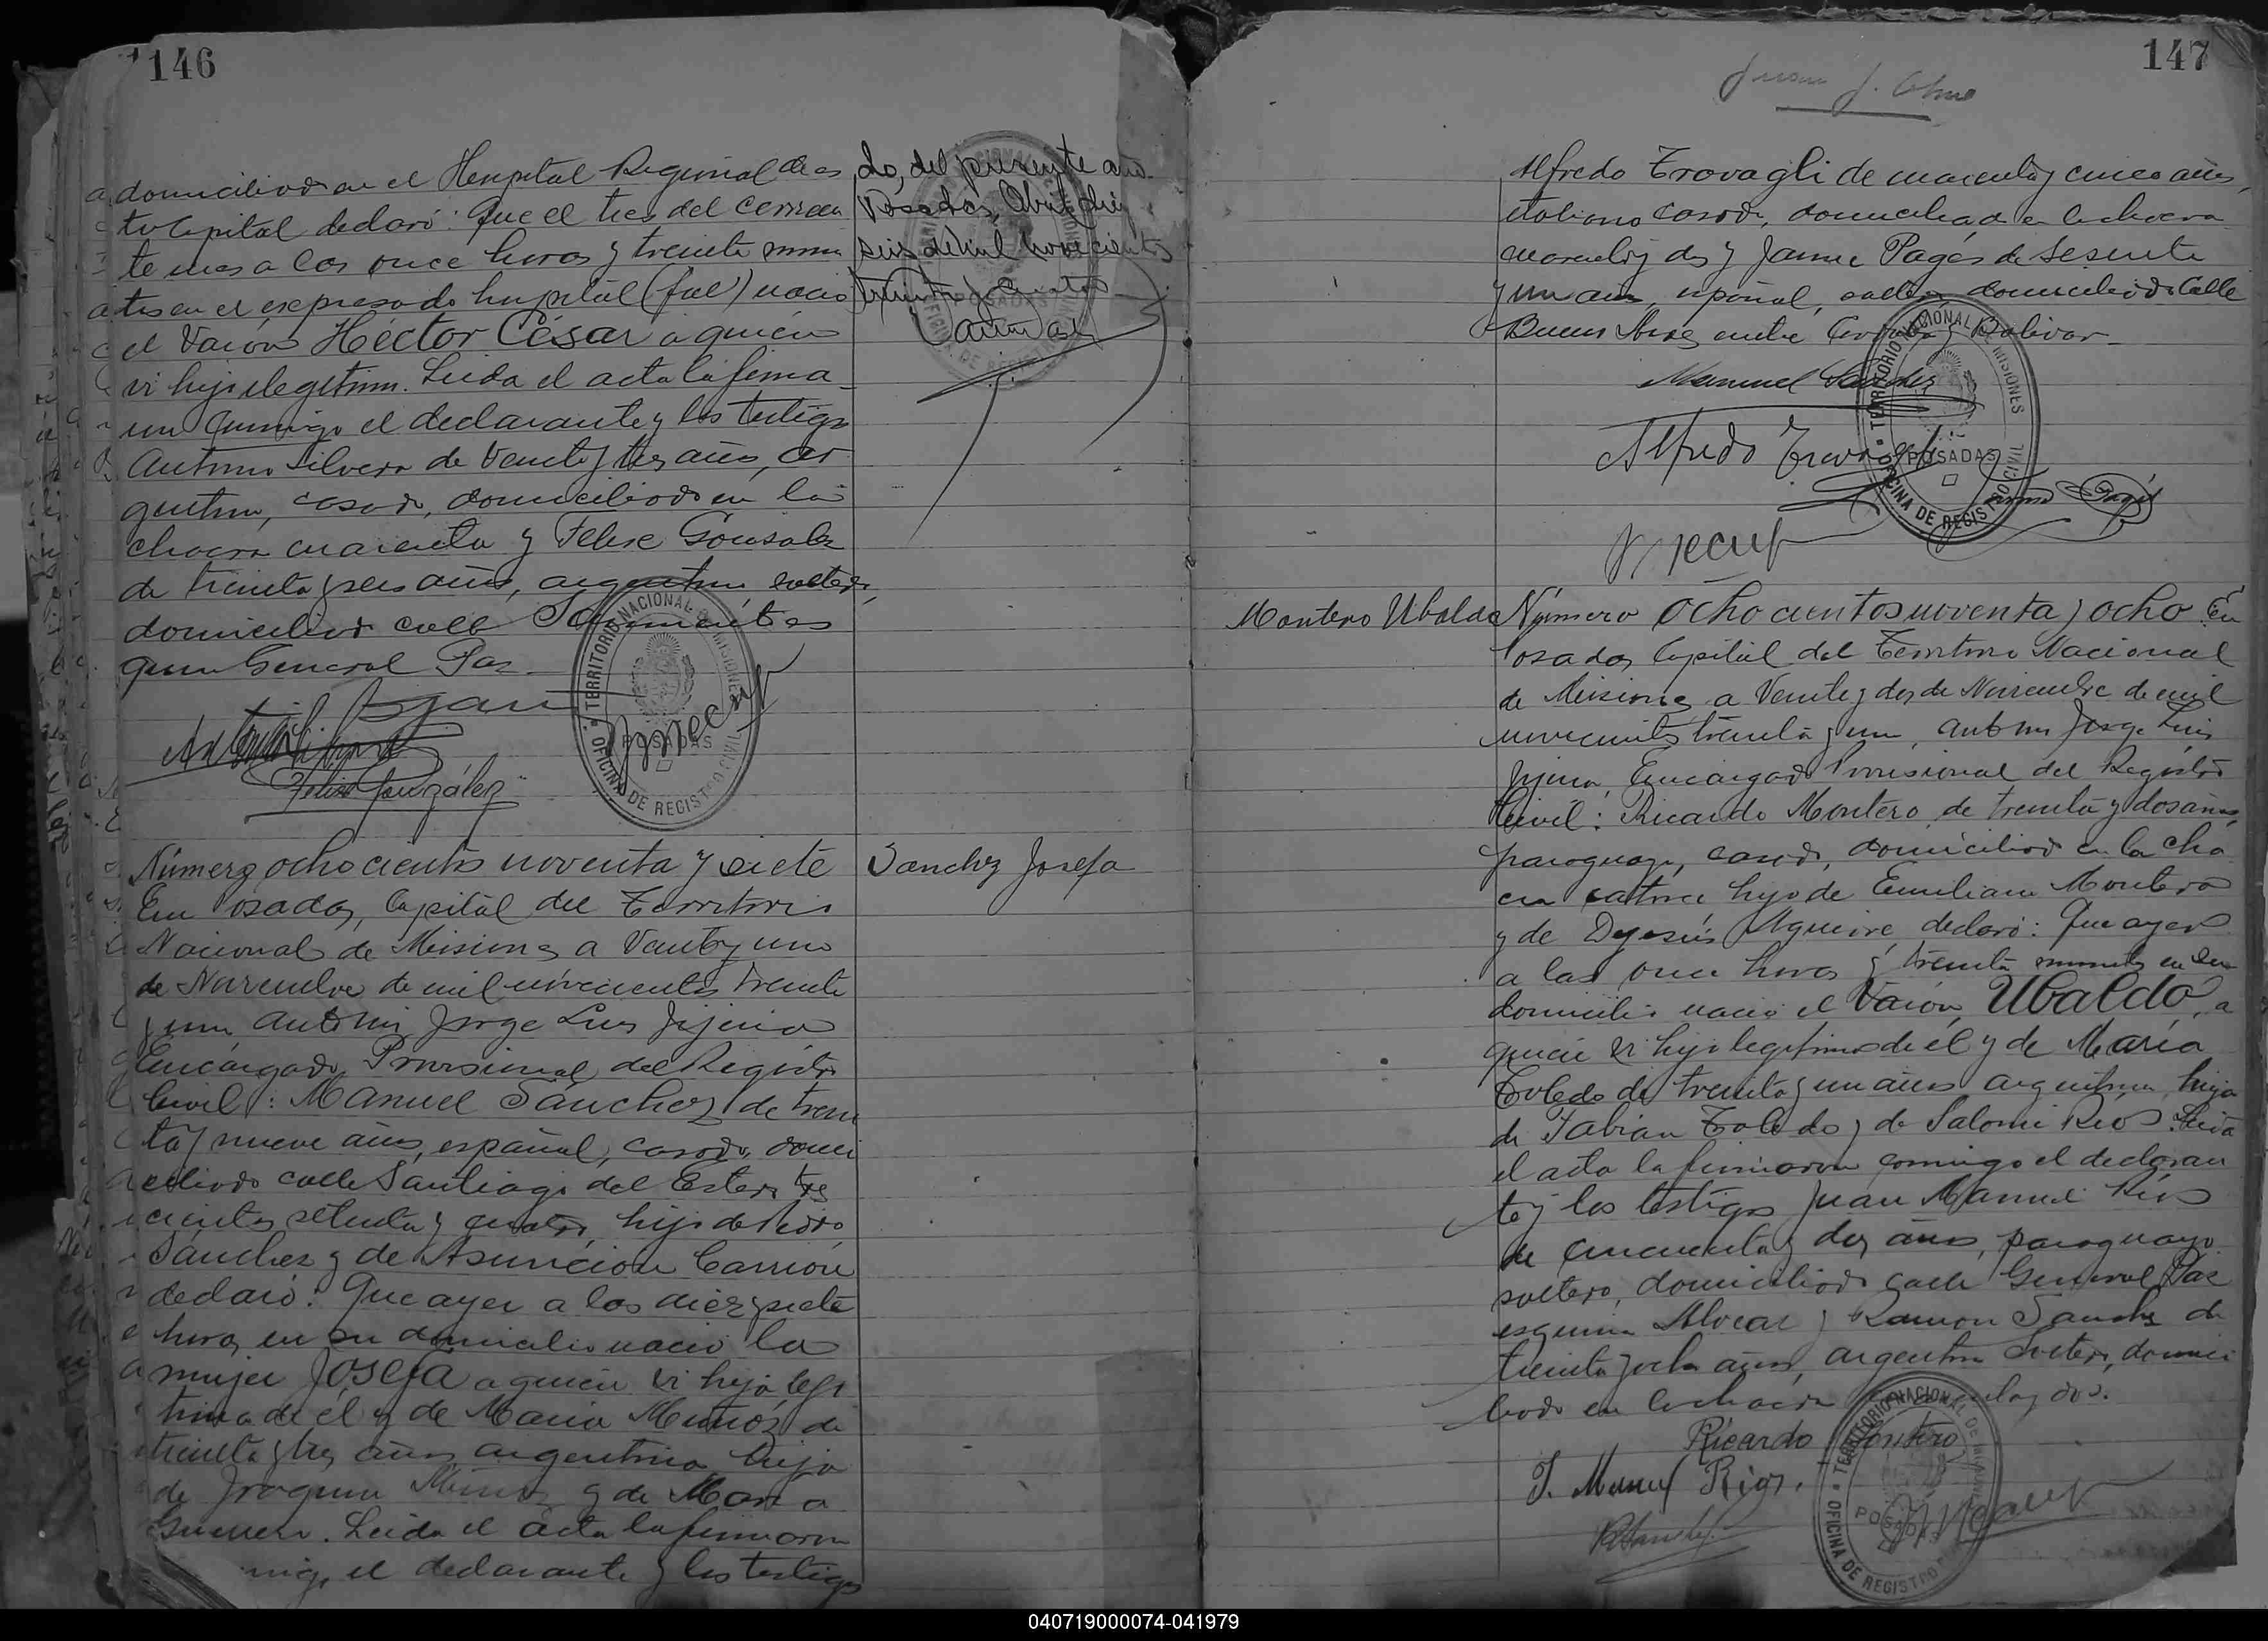 146
domiciliado en el Hospital Regional de es
ta Capital declaró: Que el tres del corrien
te mes a las once horas y treinta minu
tos en el expresado hospital (fue) nació
el Varón Héctor César a quien
vi hijo ilegitimo. Leida el acta la firma
ron conmigo el declarante y los testigos
Antonio Silvera de veinte y tres años, ar
gentino, casado, domiciliado en la
chacra cuarenta y Felix Gonsalez
de treinta y seis años, argentino, soltero,
domiciliado calle Sarmiento es
quina General Paz.
Felix González
TERRITORIO NACIONAL DE MISIONES
POSADAS
OFICINA DE REGISTRO CIVIL
do, del presente año.
Posadas, Abril diez
seis de mil novecientos
treinta y cuatro
Número ochocientos noventa y siete
En Posadas, Capital del Territorio
Nacional de Misiones a Veinte y uno
de Noviembre de mil novecientos treinta
y uno, ante mi Jorge Luis Jijena
Encargado Provisional del Registro
Civil: Manuel Sánchez de trein
ta y nueve años, español, casado, domi
ciliado calle Santiago del Estero tres
cientos setenta y cuatro, hijo de Pedro
Sánchez y de Asunción Carrión
declaró: Que ayer a las diez y siete
horas, en su domicilio nació la
mujer Josefa a quien vi hija legi
tima de él y de Maria Muñoz de
treinta y tres años argentina hija
de Joaquin Muñoz y de Maria
Guerrero. Leida el acta la firmaron
el declarante y los testigos
Sanchez Josefa
147
Juan J.
Alfredo Trovagli de cuarenta y cinco años,
italiano casado, domiciliado en la chacra
cuarenta y dos y Jaime Pagés de sesenta
y un años, español, soltero, domiciliado Calle
Buenos Aires entre Córdoba y Bolivar.
Manuel Sanchez
Alfredo Trovagli
Jaime Pagés
TERRITORIO NACIONAL DE MISIONES
POSADAS
OFICINA DE REGISTRO CIVIL
Montero Ubaldo
Número ochocientos noventa y ocho. En
Posadas, Capital del Territorio Nacional
de Misiones a Veinte y dos de Noviembre de mil
novecientos treinta y uno, ante mi Jorge Luis
Jijena, Encargado Provisional del Registro
Civil: Ricardo Montero, de treinta y dos años,
paraguayo, casado, domiciliado en la cha
cra catorce hijo de Emiliano Montero
y de Dejesús Aguirre, declaró: Que ayer
a las once horas y treinta minutos en su
domicilio nació el Varón, Ubaldo, a
quien vi hijo legitimo de él y de María
Toledo de treinta y un años argentina, hija
de Fabian Toledo y de Salomé Rios. Leida
el acta la firmaron conmigo el declaran
te y los testigos Juan Manuel Rios
de cincuenta y dos años, paraguayo
soltero, domiciliado calle General Paz
esquina Alvear y Ramon Sanchez de
treinta y ocho años, argentino soltero, domici
liado en la chacra cuarenta y dos.
Ricardo Montero
J. Manuel Rios.
TERRITORIO NACIONAL DE MISIONES
POSADAS
OFICINA DE REGISTRO CIVIL
040719000074-041979